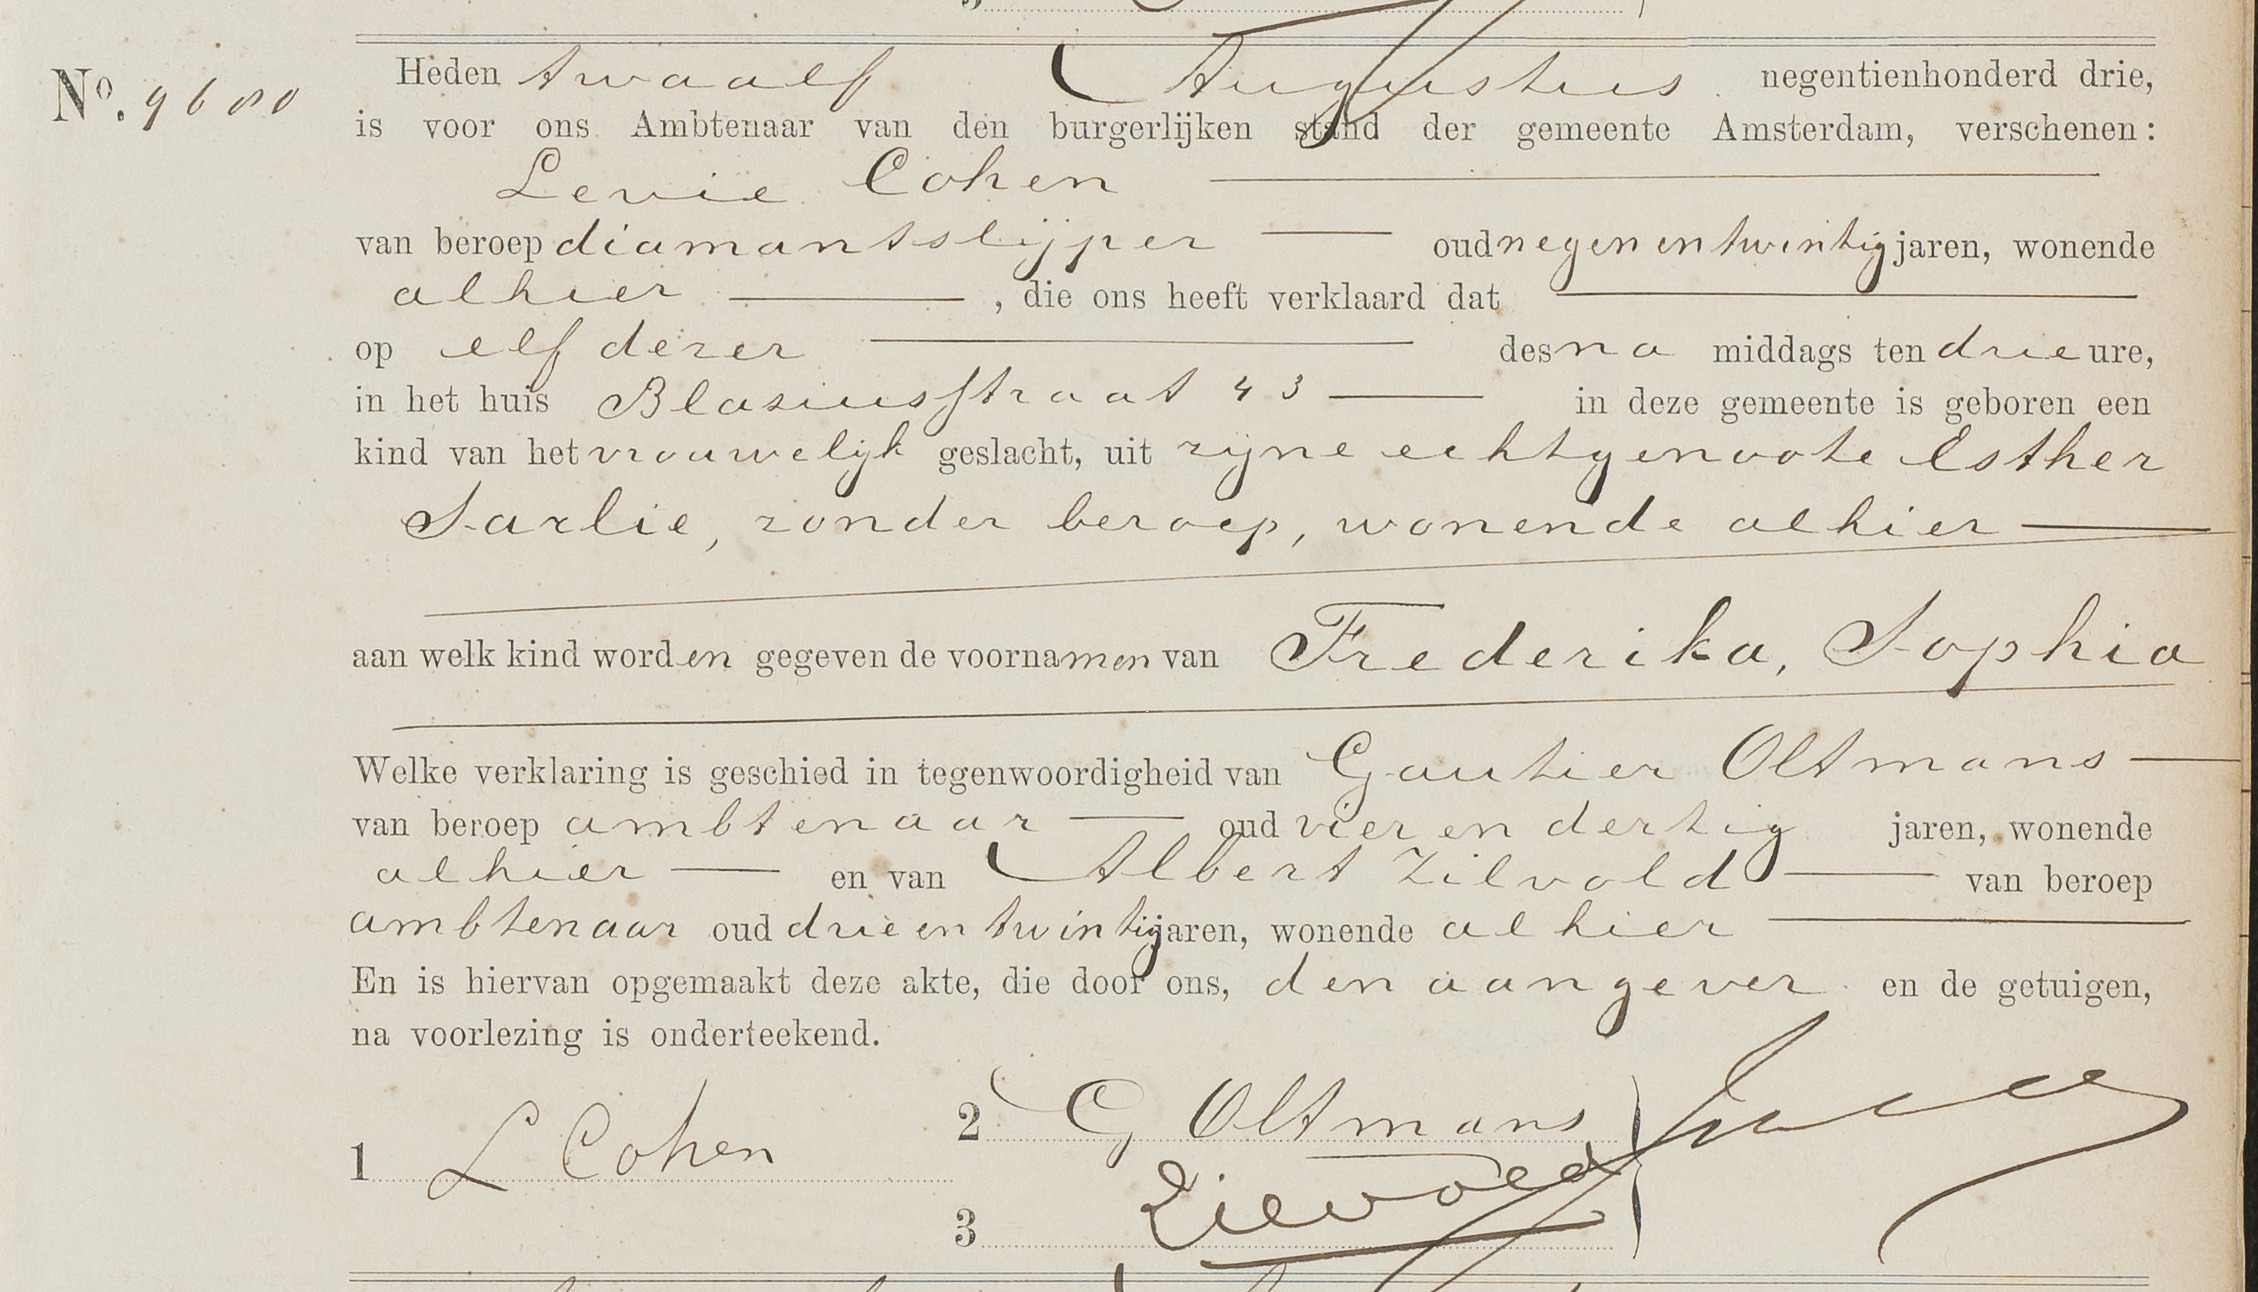 Heden twaalf Augustus negentienhonderd drie,
No. 9680
is voor ons Ambtenaar van den burgerlijken stand der gemeente Amsterdam, verschenen:
Levie Cohen
van beroep diamantslijper oud negen en twintig jaren, wonende
alhier , die ons heeft verklaard dat
op elf dezer des na middags ten drie ure,
in het huis Blasiusstraat 43 in deze gemeente is geboren een
kind van het vrouwelijk geslacht, uit zijne echtgenoote Esther
Sarlie, zonder beroep, wonende alhier
aan welk kind worden gegeven de voornamen van Frederika, Sophia
Welke verklaring is geschied in tegenwoordigheid van Gautier Oltmans
van beroep ambtenaar oud vier en dertig jaren, wonende
alhier en van Albert Zilvold van beroep
ambtenaar oud drie en twintig jaren, wonende alhier
En is hiervan opgemaakt deze akte, die door ons, den aangever en de getuigen,
na voorlezing is onderteekend.
2 G Oltmans
1 L Cohen
3 Zilvold